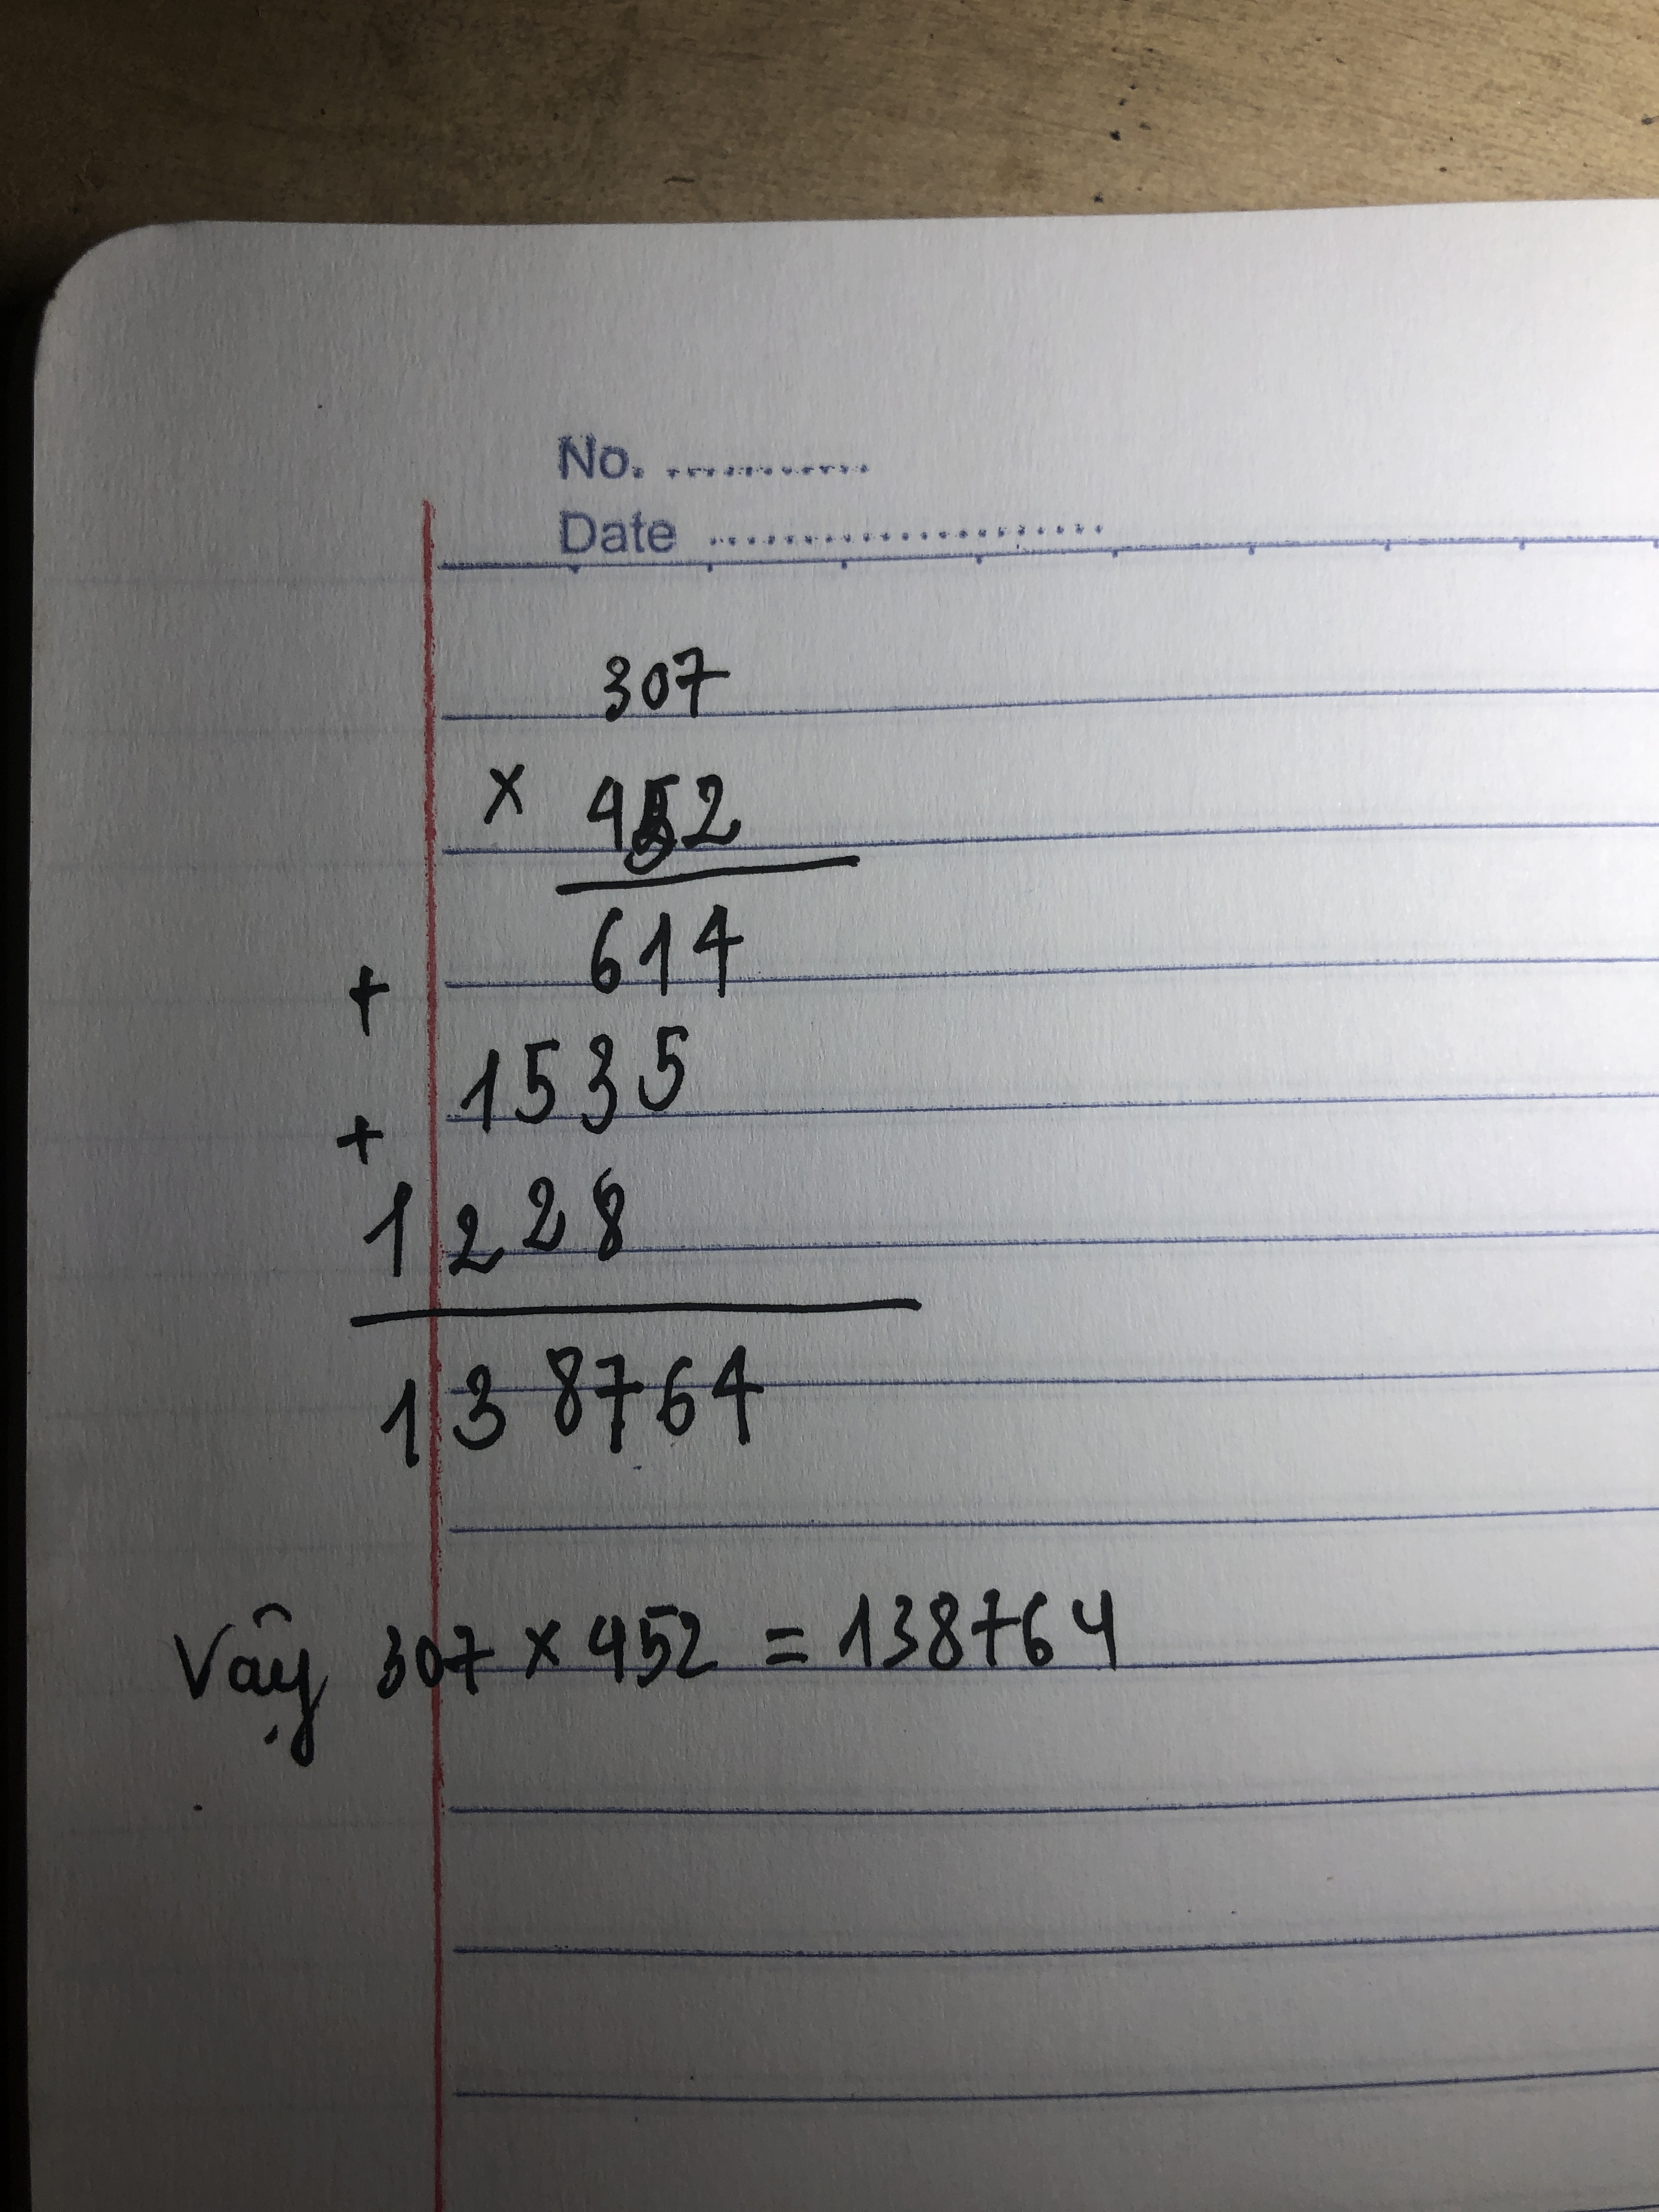 No. ............
Date ......................
307
× 452
614
+
1535
+
1228
138764
Vậy 307 × 452 = 138764